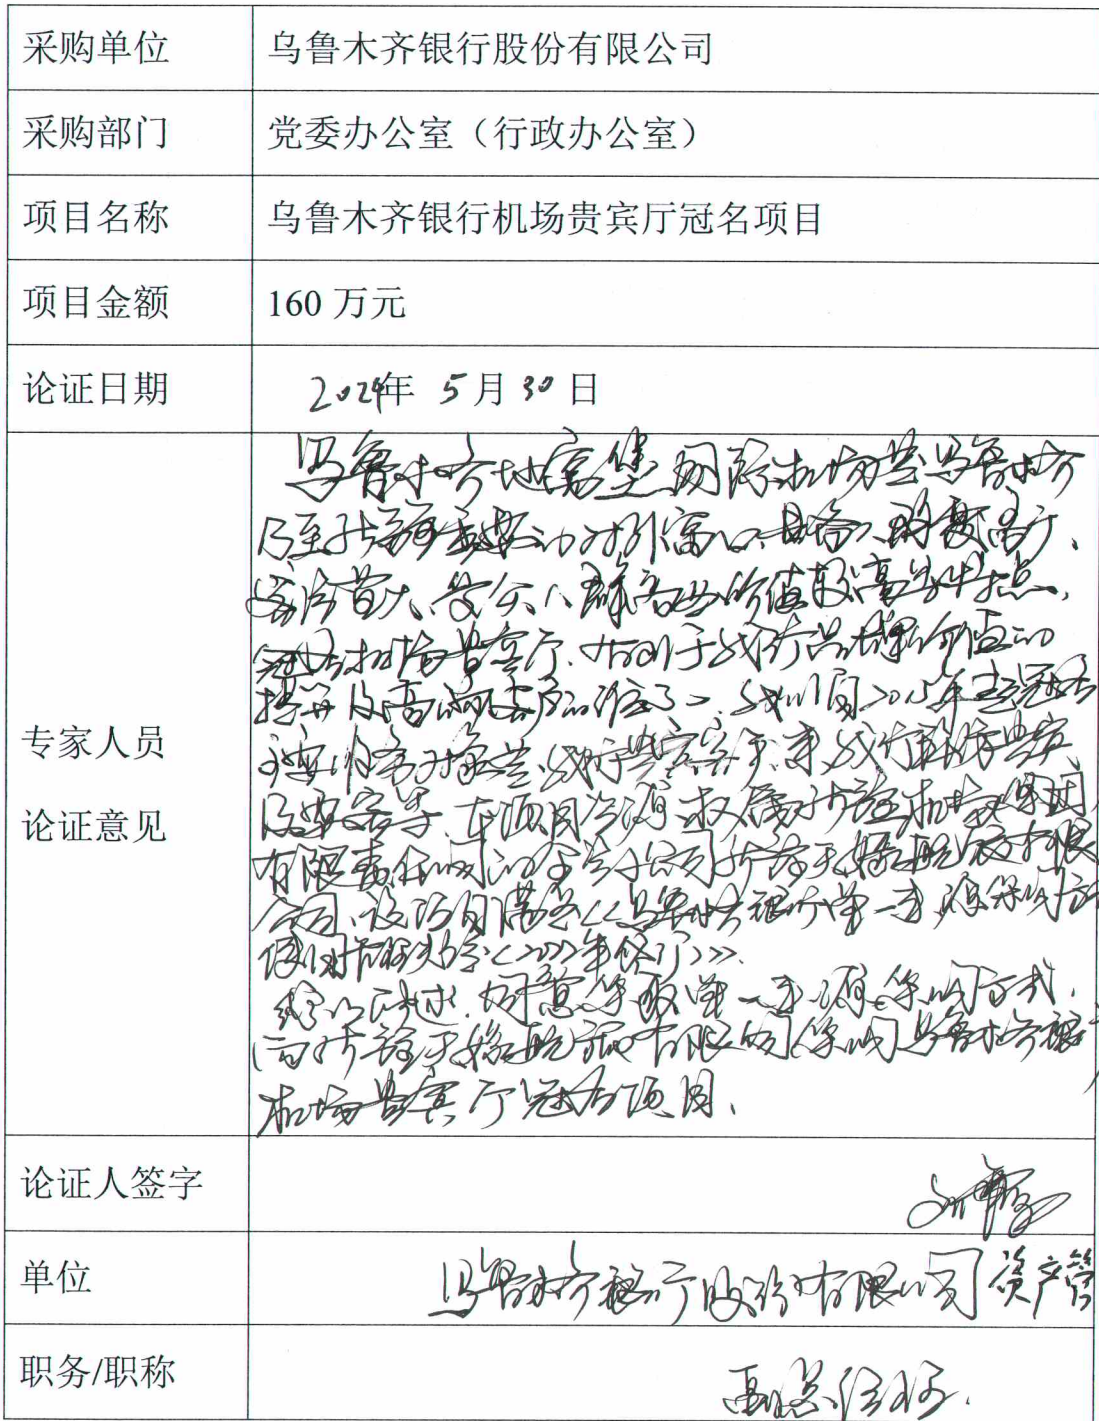 采购单位 乌鲁木齐银行股份有限公司
采购部门 党委办公室（行政办公室）
项目名称 乌鲁木齐银行机场贵宾厅冠名项目
项目金额 160 万元
论证日期 2024年 5月30日
专家人员
论证意见
乌鲁木齐地窝堡国际机场是乌鲁木齐
乃至新疆重要的对外窗口、具备人群覆盖广、
客流量大、受众人群商业价值较高等特点，
冠名机场贵宾厅，有利于我行品牌价值的
提升及高端客户的维
主要服务对象是我行贵宾
及要客等。本项目资源权属新疆机场集团
有限责任公司的全资子公司新疆天缘航服有限
公司，该项目满足《乌鲁木齐银行单一来源采购方式
使用 (2022年修订)》
综上所述，同意采取单一来源采购方式，
向新疆天缘航服有限公司采购乌鲁木齐银行
机场贵宾厅冠名项目。
论证人签字
单位 乌鲁木齐银行股份有限公司 资产管
职务/职称